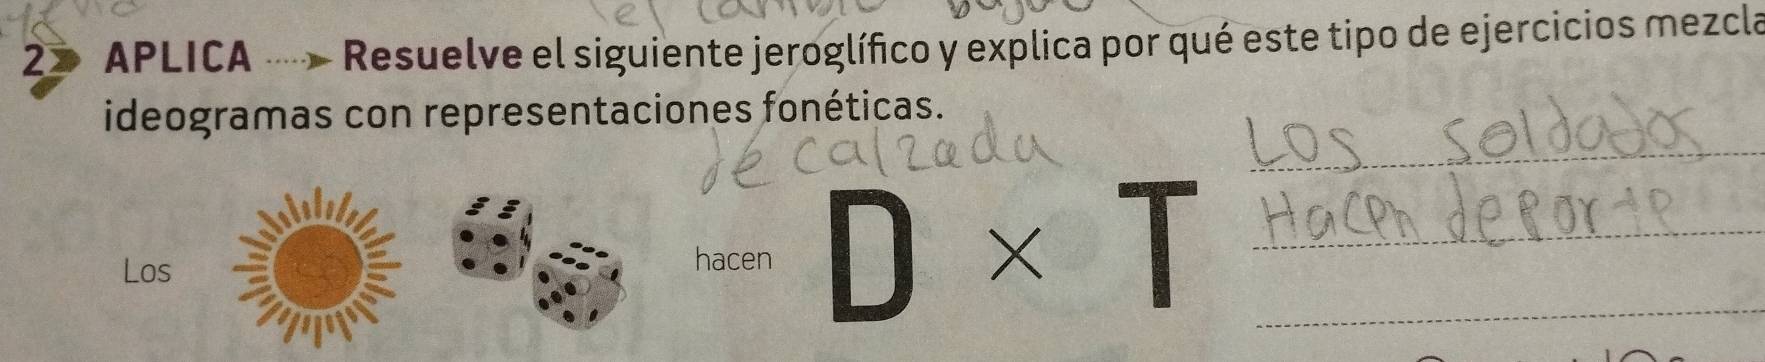 el cambio bajo
2 APLICA ····· Resuelve el siguiente jeroglífico y explica por qué este tipo de ejercicios mezcla
ideogramas con representaciones fonéticas.
de calzada
Los hacen D × T
Los soldados
Hacen deporte